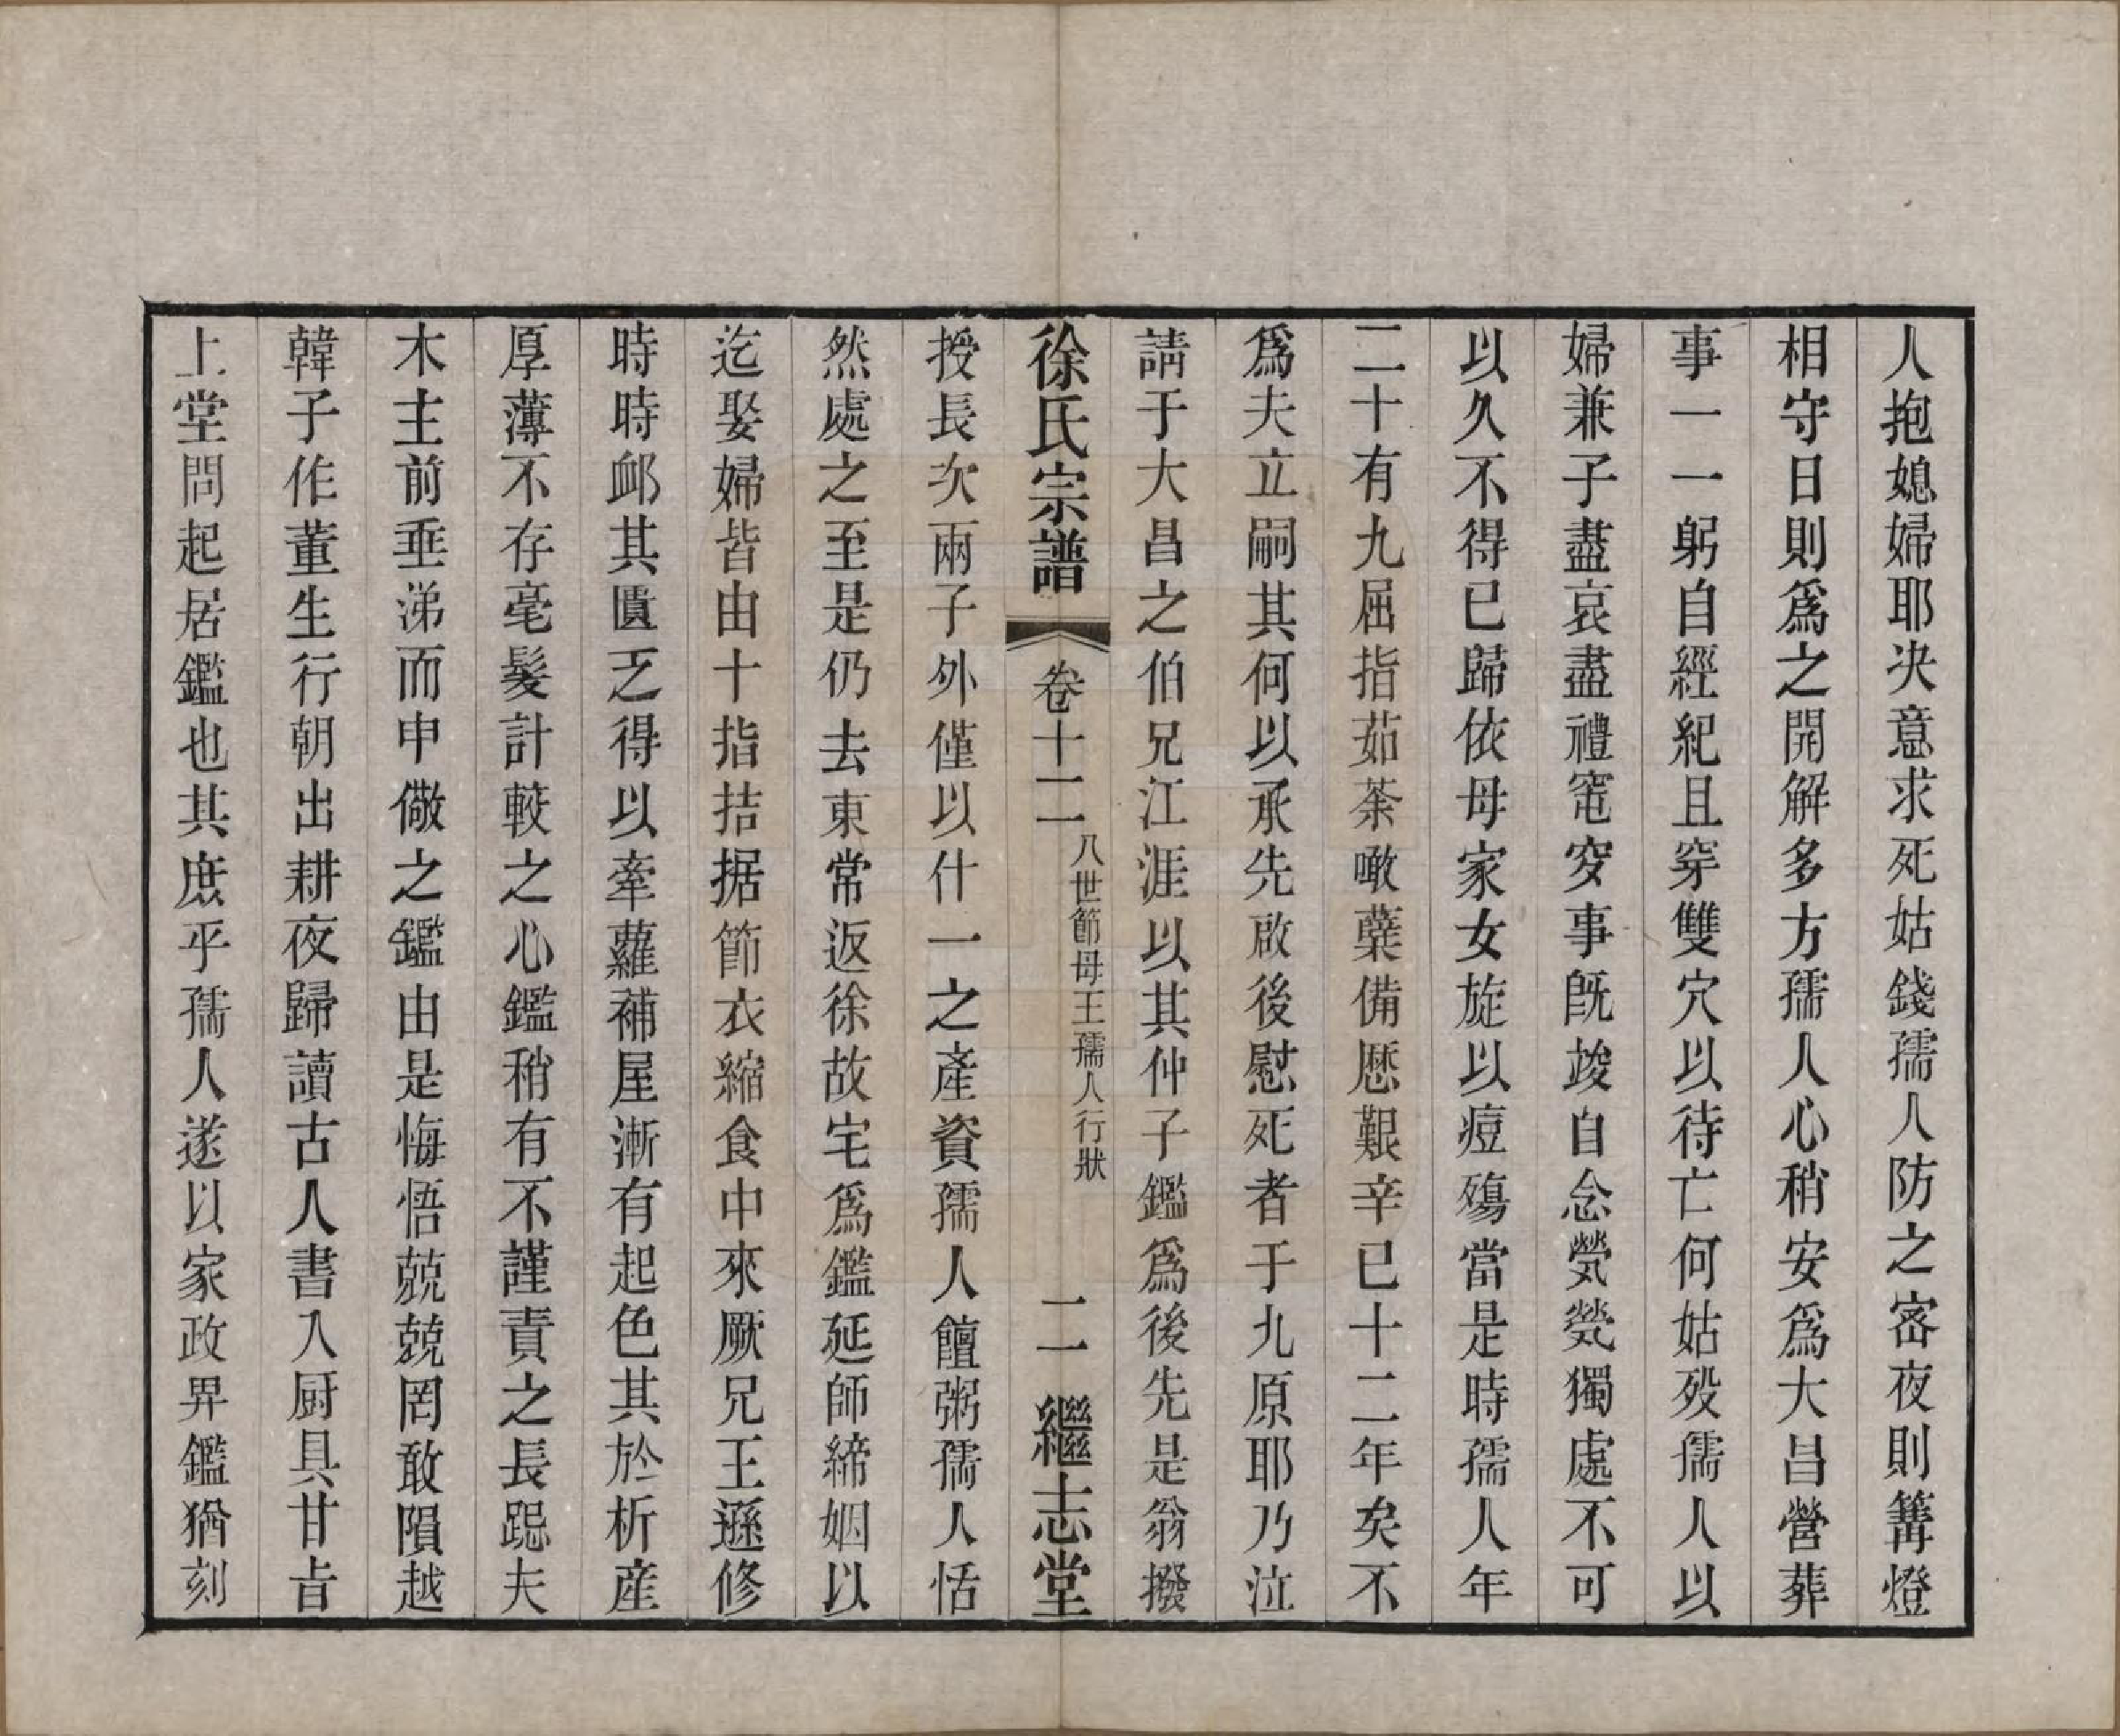 人抱媳婦耶决意求死姑錢孺人防之宻夜則篝燈
相守日則爲之開解多方孺人心稍安爲大昌營葬
事一一躬自經紀且穿雙穴以待亡何姑殁孺人以
婦兼子盡哀盡禮窀穸事既竣自念煢煢獨處不可
以久不得已歸依母家女旋以痘殤當是時孺人年
二十有九屈指茹荼噉蘖備厯艱辛已十二年矣不
爲夫立嗣其何以承先啟後慰死者于九原耶乃泣
請于大昌之伯兄江涯以其仲子鑑爲後先是翁撥
徐氏宗譜 卷十二 八世節母王孺人行狀 二 繼志堂
授長次兩子外僅以什一之產資孺人饘粥孺人恬
然處之至是仍去東常返徐故宅爲鑑延師締姻以
迄娶婦皆由十指拮据節衣縮食中來厥兄王遜修
時時卹其匱乏得以牽蘿補屋漸有起色其於析産
厚薄不存毫髮計較之心鑑稍有不謹責之長跽夫
木主前垂涕而申儆之鑑由是悔悟兢兢罔敢隕越
韓子作董生行朝出耕夜歸讀古人書入厨具甘旨
上堂問起居鑑也其庶乎孺人遂以家政畀鑑猶刻